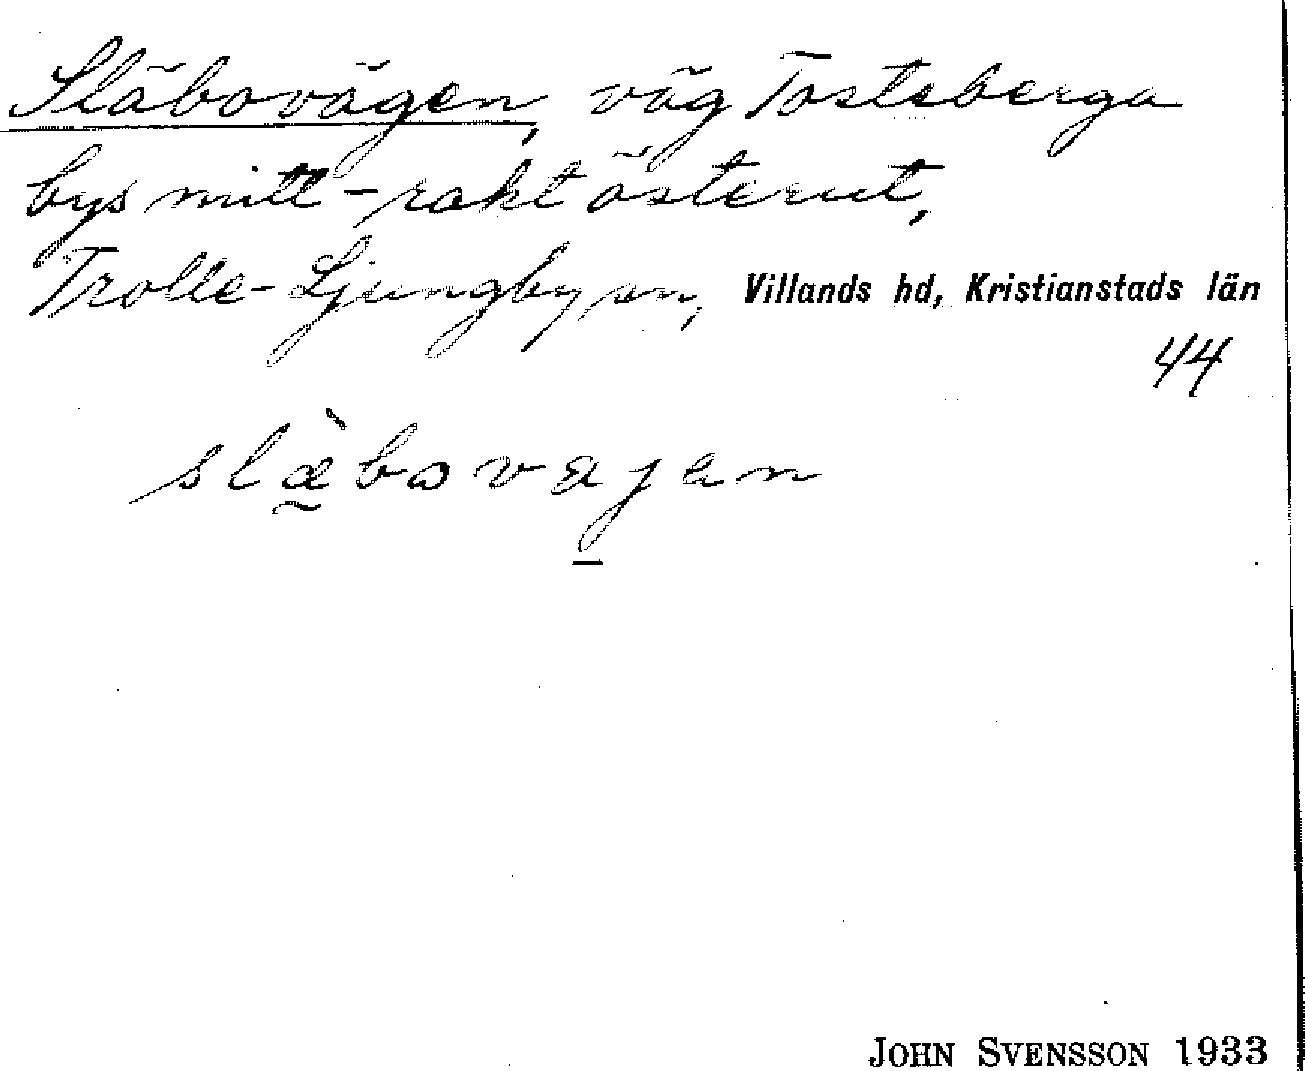 Släbovägen, väg Tosteberga
bys mitt - rakt österut,
Trolle-Ljungby sn, Villands hd, Kristianstads län
44
slæ̀bovajan
JOHN SVENSSON 1933